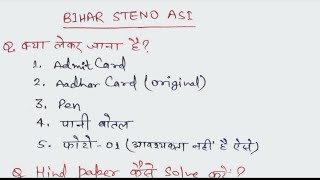 BIHAR STENO ASI
Q क्या लेकर जाना है?
1. Admit Card
2. Aadhar Card (original)
3. Pen
4. पानी बोतल
5. फोटो - 01 (आवश्यकता नहीं है ऐसे)
Q Hind paper कैसे Solve करें?